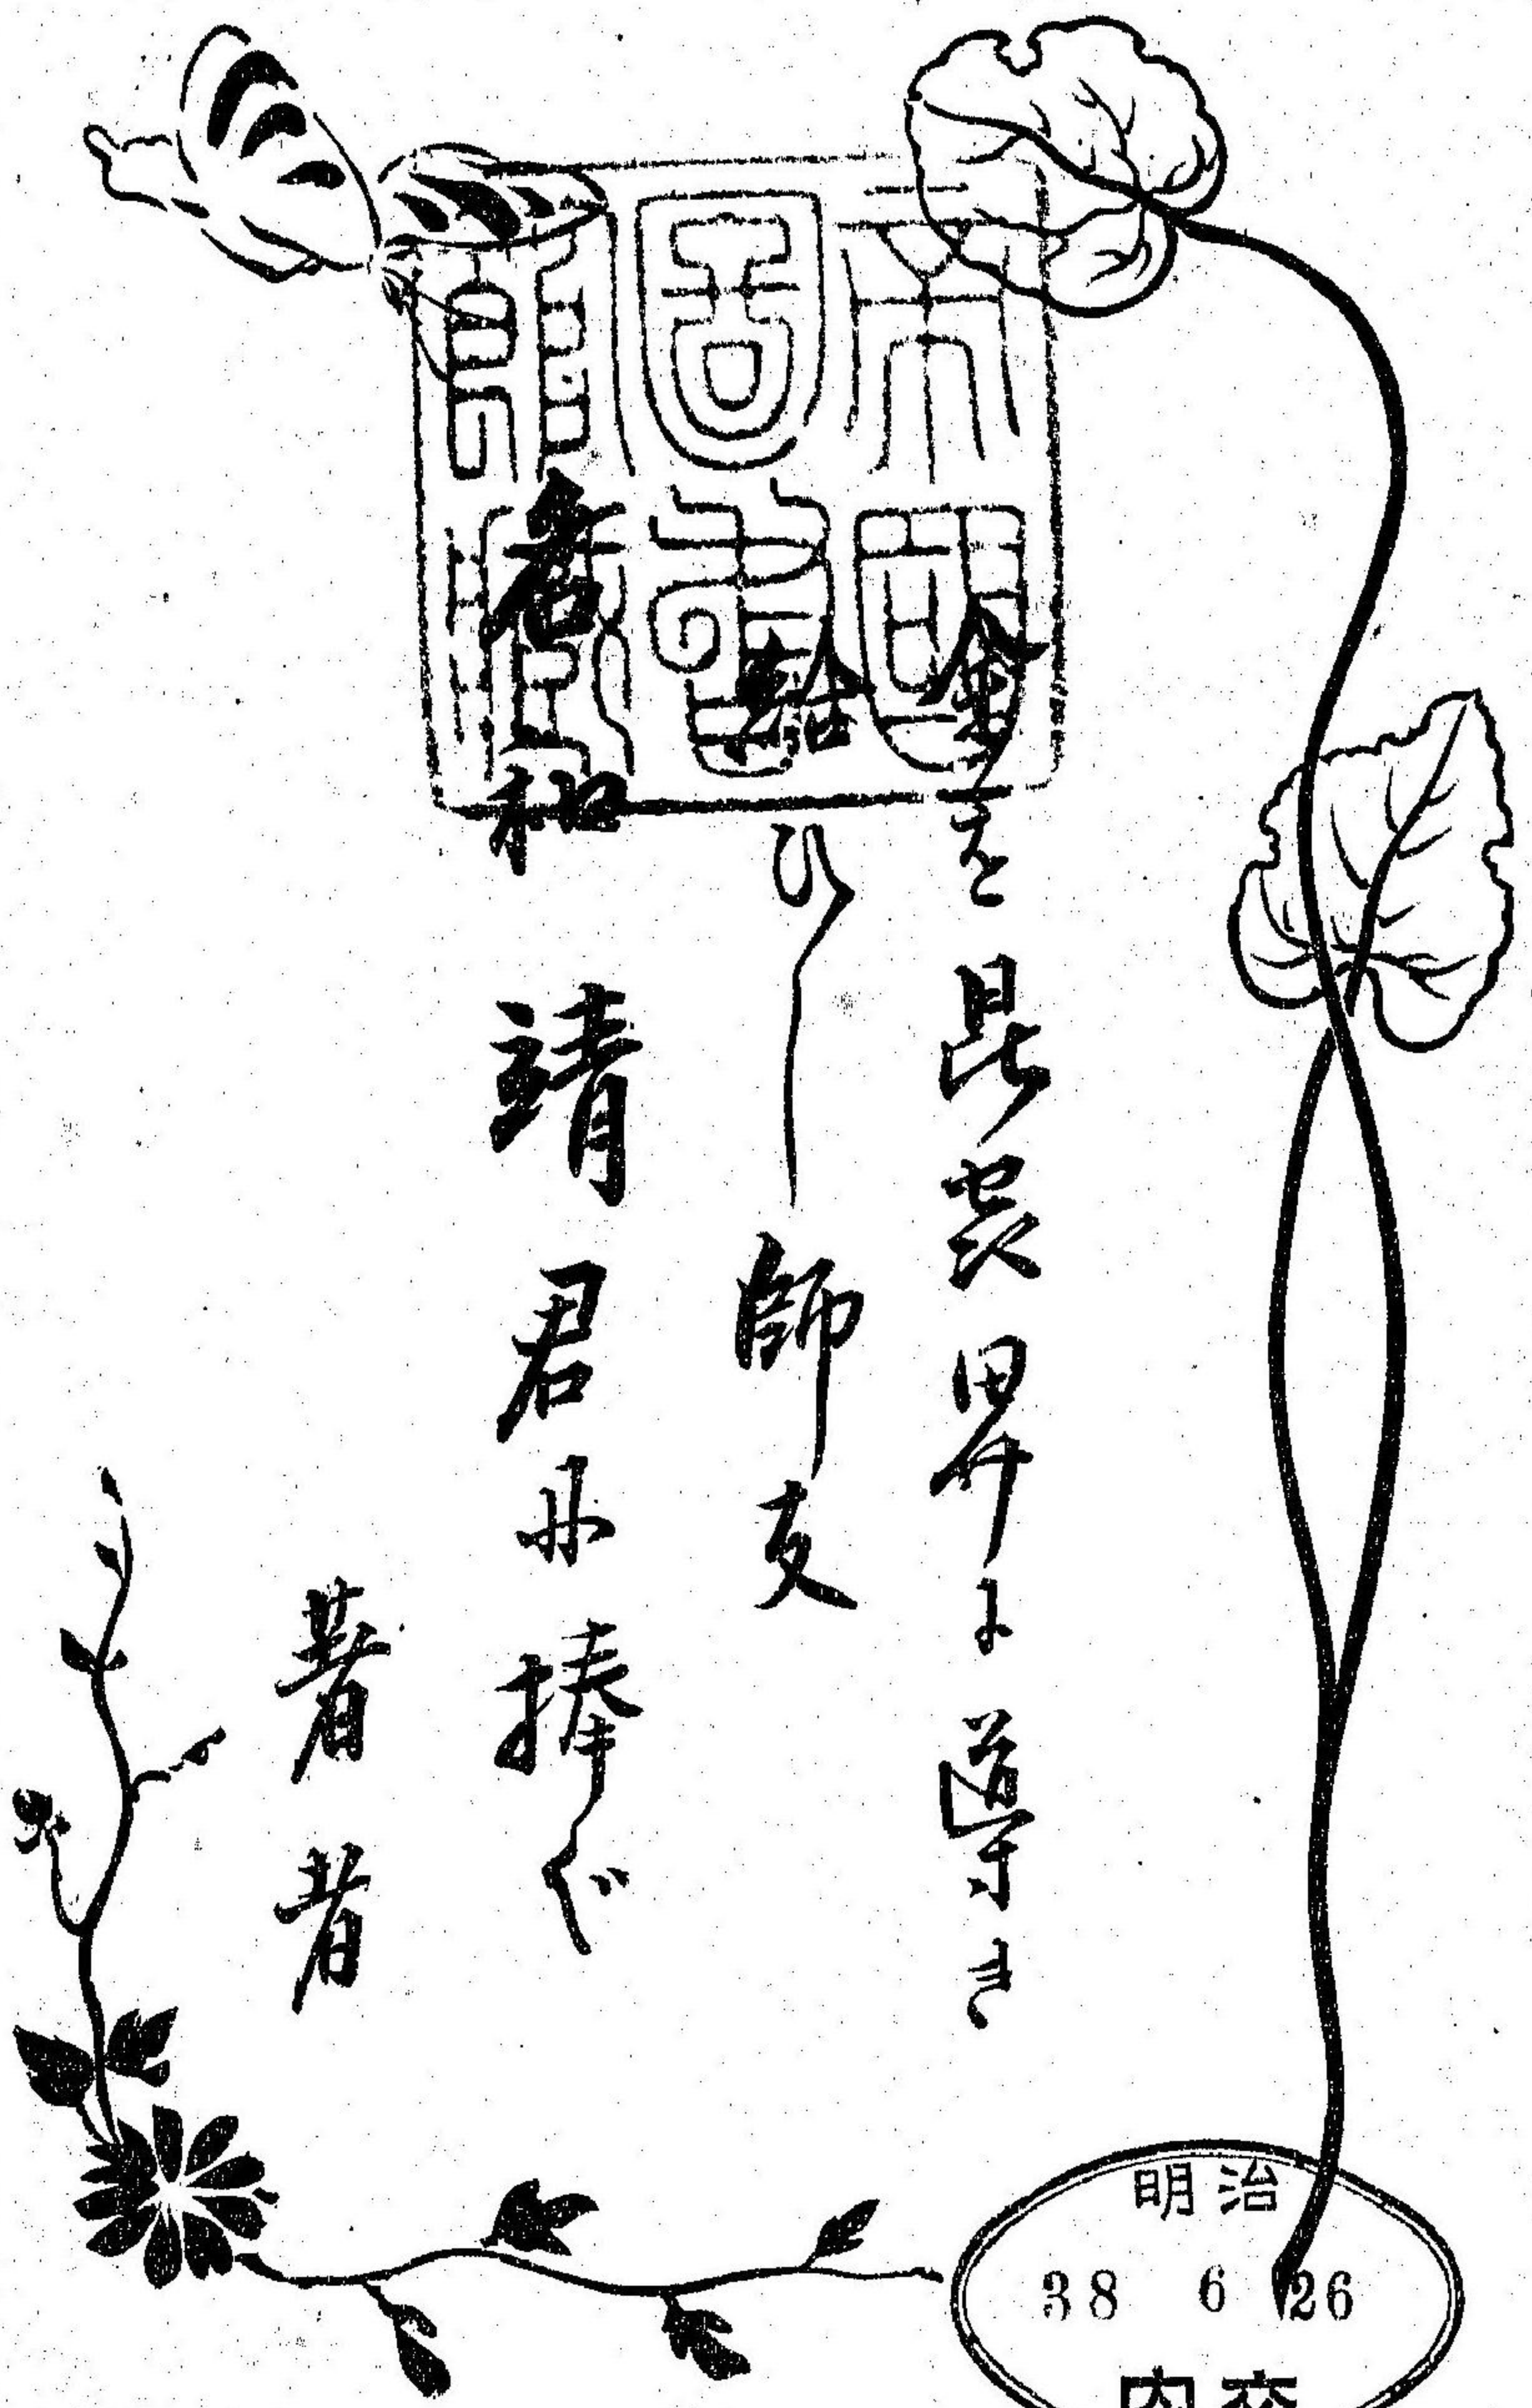 帝國
圖書
館藏
余を昆蟲界に導き
給ひし師友
名和靖君に捧ぐ
著者
明治
38 6 26
内交